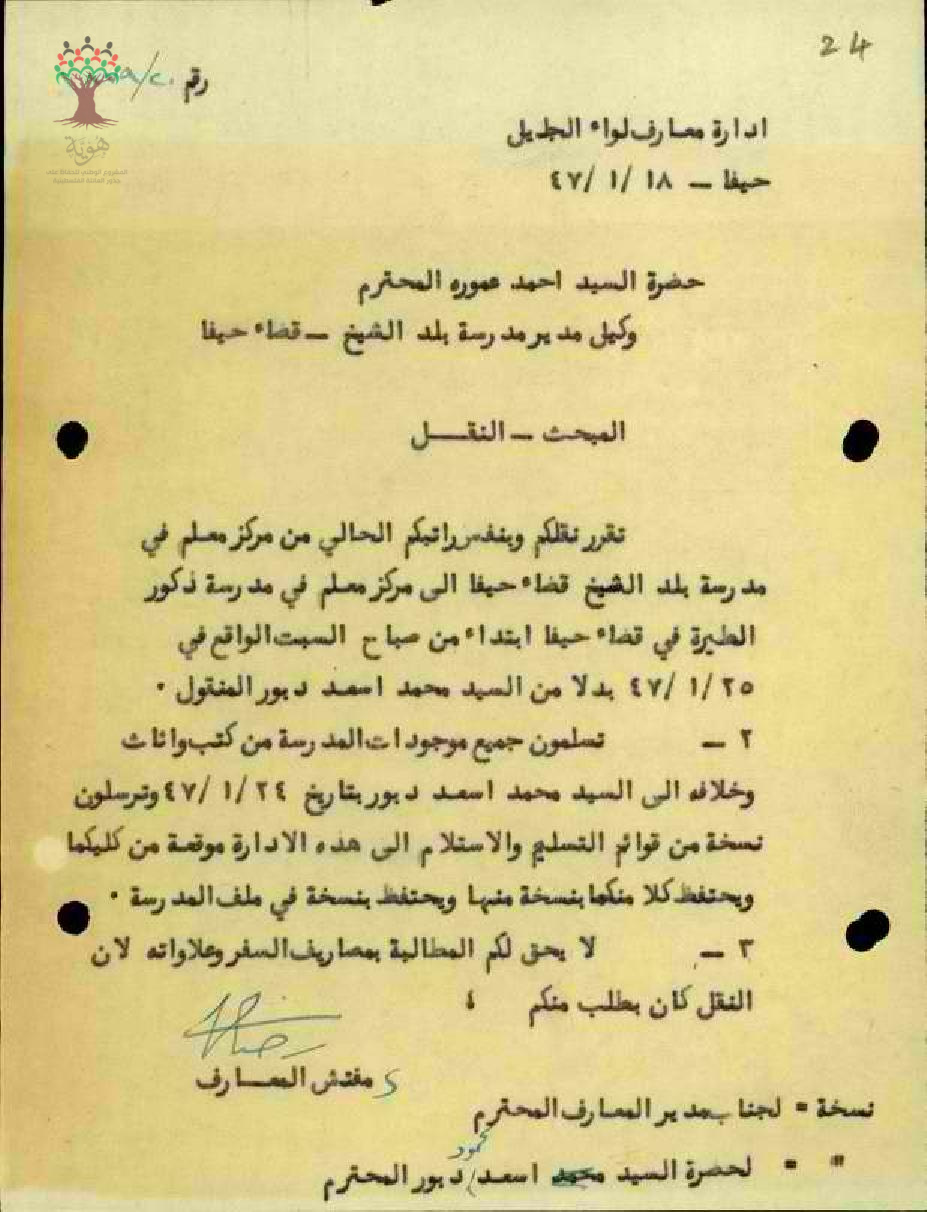 24
رقم
هوية
المشروع الوطني للحفاظ على
جذور العائلة الفلسطينية
ادارة معارف لواء الجليل
حيفا – ١٨ /١ /٤٧
حضرة السيد احمد عموره المحترم
وكيل مدير مدرسة بلد الشيخ – قضاء حيفا
المبحث – النقـــل
تقرر نقلكم وبنفس راتبكم الحالي من مركز معلم في
مدرسة بلد الشيخ قضاء حيفا الى مركز معلم في مدرسة ذكور
الطيرة في قضاء حيفا ابتداء من صباح السبت الواقع في
٢٥ /١ /٤٧ بدلا من السيد محمد اسعد دبور المنقول .
٢ – تسلمون جميع موجودات المدرسة من كتب واثاث
وخلافه الى السيد محمد اسعد دبور بتاريخ ٢٤ /١ /٤٧ وترسلون
نسخة من قوائم التسليم والاستلام الى هذه الادارة موقعة من كليكما
ويحتفظ كلا منكما بنسخة منها ويحتفظ بنسخة في ملف المدرسة .
٣ – لا يحق لكم المطالبة بمصاريف السفر وعلاواته لان
النقل كان بطلب منكم
مفتش المعــارف
نسخة = لجناب مدير المعارف المحترم
" = لحضرة السيد محمد محمود اسعد دبور المحترم